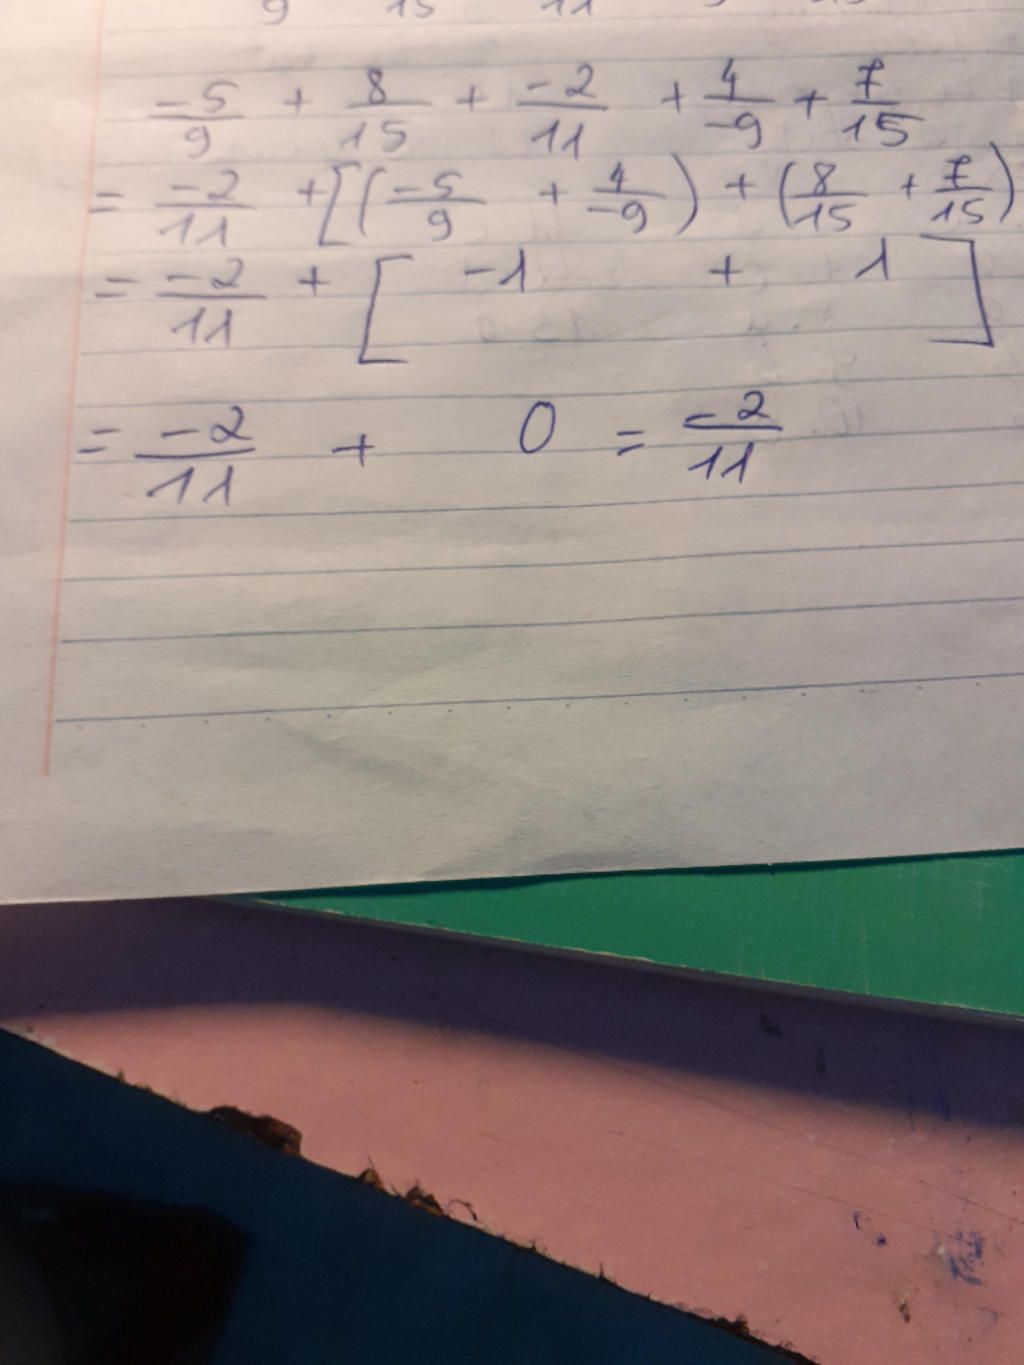 -5/9 + 8/15 + -2/11 + 4/-9 + 7/15
= -2/11 + [(-5/9 + 4/-9) + (8/15 + 7/15)
= -2/11 + [ -1 + 1 ]
= -2/11 + 0 = -2/11